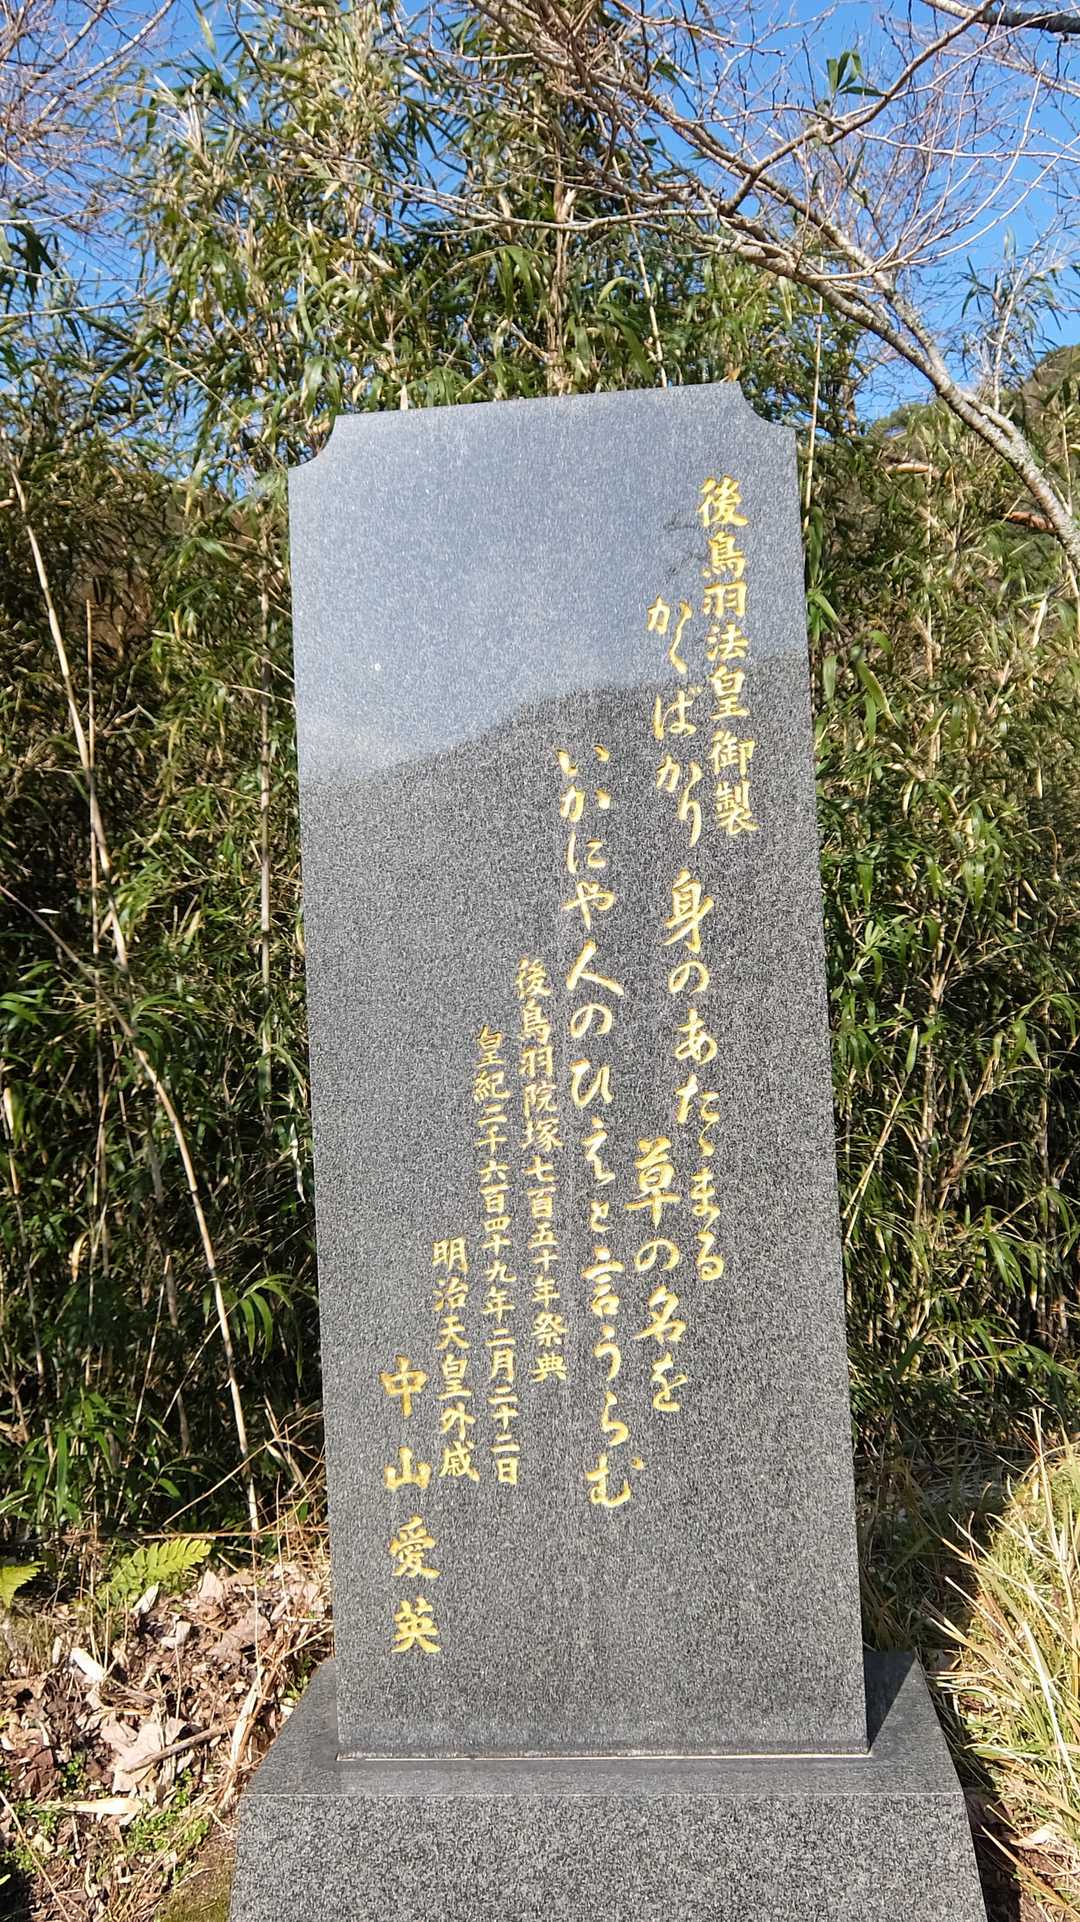 後鳥羽法皇御製
かくばかり身のあたゝまる
草の名を
いかにや人のひえと言うらむ
後鳥羽院塚七百五十年祭典
皇紀二千六百四十九年二月二十二日
明治天皇外戚
中山愛英